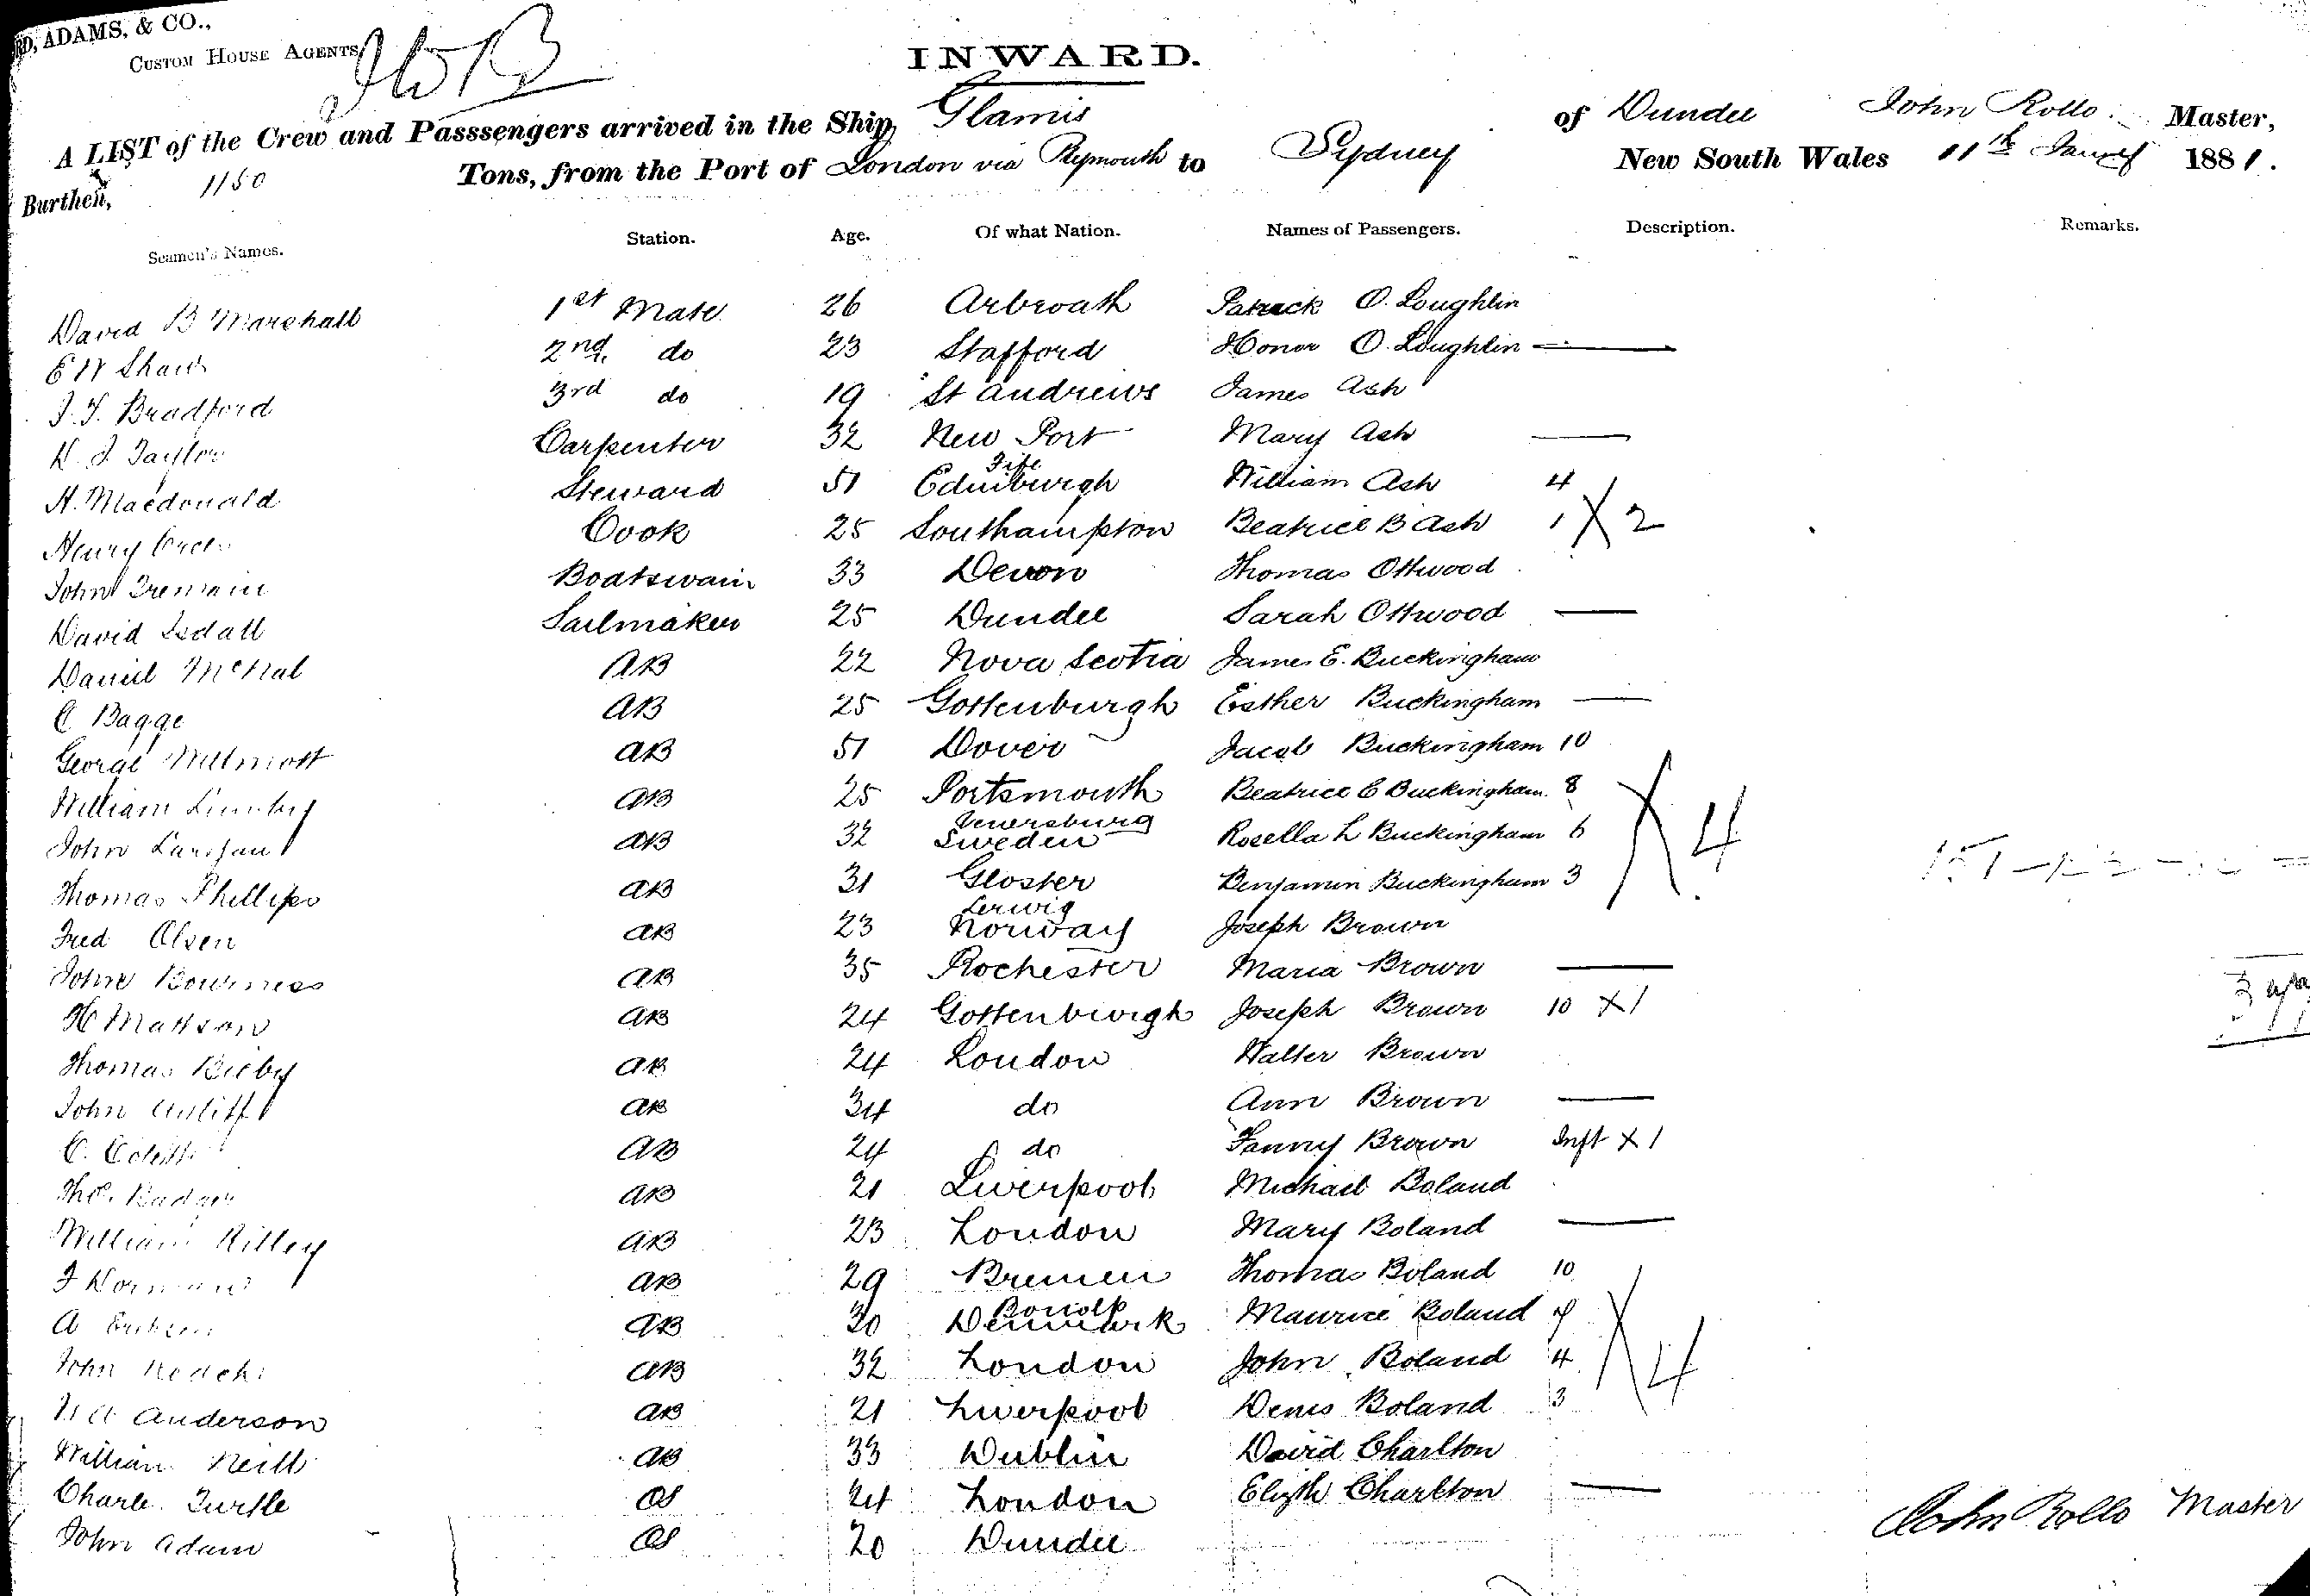 RD, ADAMS, & CO.,
CUSTOM HOUSE AGENTS
INWARD.
A LIST of the Crew and Passsengers arrived in the Ship, Glamis of Dundee John Rollo Master,
Burthen, 1150 Tons, from the Port of London via Plymouth to Sydney New South Wales 11th Jany 1881.
Seamen's Names. Station. Age. Of what Nation. Names of Passengers. Description. Remarks.
David B Marshall 1st Mate 26 Arbroath Patrick O. Loughlin
E W Shaw 2nd. do 23 Stafford Honor O. Loughlin
J. T. Bradford 3rd do 19 St Andrews James Ash
J Taylor Carpenter 32 New Port Fife Mary Ash
A. Macdonald Steward 51 Edinburgh William Ash 4
Henry Cook 25 Southampton Beatrice B Ash 1 X 2
John Tremain Boatswain 33 Devon Thomas Ottwood
David Isdall Sailmaker 25 Dundee Sarah Ottwood
Daniel McNab AB 22 Nova Scotia James E. Buckingham
C. Bagge AB 25 Gottenburgh Esther Buckingham
George Willmott AB 51 Dover Jacob Buckingham 10
William AB 25 Portsmouth Beatrice E Buckingham. 8
John AB 32 Sweden Rosella L Buckingham 6 X 4
Thomas Phillips AB 31 Gloster Benjamin Buckingham 3
Fred Olsen AB 23 Lerwig Norway Joseph Brown
John Bowness AB 35 Rochester Maria Brown
H Mattson AB 24 Gottenburgh Joseph Brown 10 X 1
Thomas Bieby AB 24 London Walter Brown
John AB 34 do Ann Brown
C. AB 24 do Fanny Brown Inft X 1
Thos. Badger AB 21 Liverpool Michael Boland
William Rilley AB 23 London Mary Boland
J AB 29 Bremen Thomas Boland 10
A AB 30 Denmark Maurice Boland 7
John AB 32 London John Boland 4 X 4
Anderson AB 21 Liverpool Denis Boland 3
William Neill AB 33 Dublin David Charlton
Charles Turtle OS 24 London Elizth Charlton
John Adam OS 20 Dundee
John Rollo Master